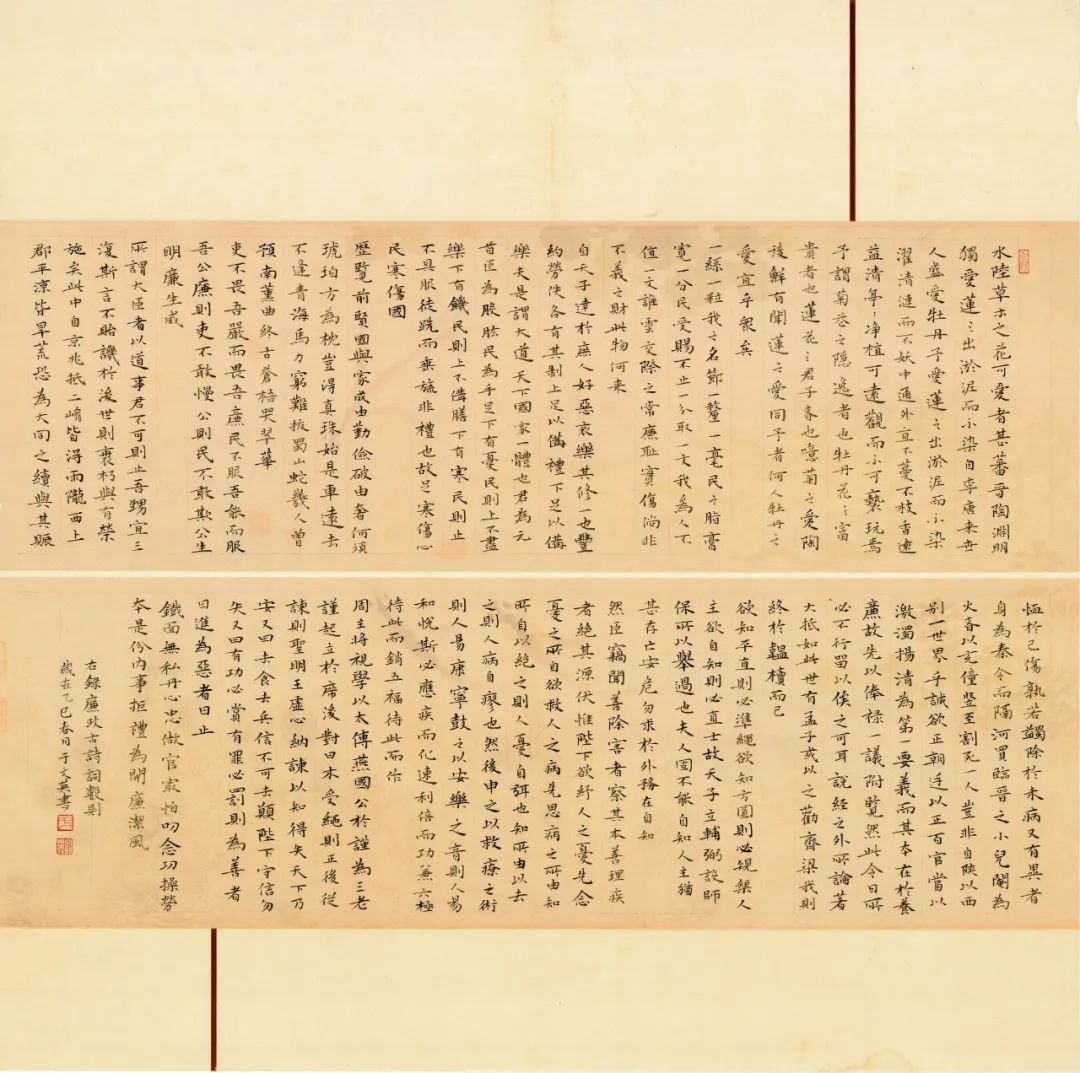 水陸草木之花可愛者甚蕃晉陶淵明
獨愛蓮〻出淤泥而不染自李唐來世
人盛愛牡丹予愛蓮之出淤泥而不染
濯清漣而不妖中通外直不蔓不枝香遠
益清亭〻淨植可遠觀而不可褻玩焉
予謂菊花之隱逸者也牡丹花之富
貴者也蓮花之君子者也噫菊之愛陶
後鮮有聞蓮之愛同予者何人牡丹之
愛宜乎衆矣
一絲一粒我之名節一釐一毫民之脂膏
寬一分民受賜不止一分取一文我為人不
值一文誰雲交際之常廉恥實傷倘非
不義之財此物何來
自天子達於庶人好惡哀樂其修一也豐
約勞佚各有其制上足以備禮下足以備
樂夫是謂大道天下國家一體也君為元
首臣為股肱民為手足下有憂民則上不盡
樂下有饑民則上不備膳下有寒民則上
不具服徒跣而垂旒非禮也故足寒傷心
民寒傷國
歷覽前賢國與家成由勤儉破由奢何須
琥珀方為枕豈得真珠始是車遠去
不逢青海馬力窮難拔蜀山蛇幾人曾
預南薰曲終古蒼梧哭翠華
吏不畏吾嚴而畏吾廉民不服吾能而服
吾公廉則吏不敢慢公則民不敢欺公生
明廉生威
所謂大臣者以道事君不可則止吾甥宜三
復斯言不貽譏於後世則衰朽與有榮
施矣此中自京兆抵二崤皆得雨隴西上
郡平涼皆旱荒恐為大同之續與其賑
恤於已傷孰若蠲除於未病又有異者
身為秦令而隔河買臨晉之小兒閹為
火者以充僮豎至割死一人豈非自陝以西
別一世界乎誠欲正朝廷以正百官當以
激濁揚清為第一要義而其本在於養
廉故先以俸祿一議附覽然此今日所
必不行留以俟之可耳說經之外所論著
大抵如此世有孟子或以之勸齊梁我則
終於韞櫝而已
欲知平直則必準繩欲知方圓則必規榘人
主欲自知則必直士故天子立輔弼設師
保所以舉過也夫人固不能自知人主猶
甚存亡安危勿求於外務在自知
然臣竊聞善除害者察其本善理疾
者絕其源伏惟陛下欲紓人之憂先念
憂之所自欲救人之病先思病之所由知
所自以絕之則人憂自弭也知所由以去
之則人病自瘳也然後申之以救療之術
則人易康寧鼓之以安樂之音則人易
和悅斯必應疾而化速利倍而功兼六極
待此而銷五福待此而作
周主將視學以太傅燕國公於謹為三老
謹起立於席後對曰木受繩則正後從
諫則聖明王虛心納諫以知得失天下乃
安又曰去食去兵信不可去願陛下守信勿
失又曰有功必賞有罪必罰則為善者
日進為惡者日止
鐵面無私丹心忠做官最怕叨念功操勞
本是份內事拒禮為開廉潔風
右錄廉政古詩詞數則
歲在乙巳春日于文英書